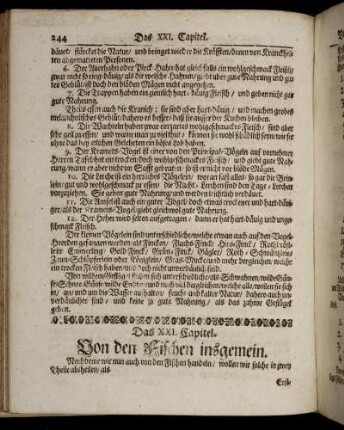 244 Das XXI. Capitel.
däuet / stärcket die Natur / und bringet wieder die Kräfften / denen von Kranckhei-
ten abgematteten Personen.
6. Der Auerhahn oder Birck-Hahn hat gleichfalls ein wohlgeschmack Fleisch/
zwar nicht so hart-däuig als die welsche Hahnen / giebt aber gute Nahrung und gu-
tes Geblüt / ist doch den blöden Mägen nicht angenehm.
7. Die Trappen haben ein zimlich hart-däuig Fleisch / und geben nicht gar
gute Nahrung.
Theils essen auch die Kranich: sie sind aber hart-däuig / und machen grobes
melancholisches Geblüt / dahero es besser / daß sie ausser der Kuchen bleiben.
8. Die Wachteln haben zwar ein zartes wohlgeschmacktes Fleisch / sind aber
sehr geil zu essen / und wann man zu viel
ohne daß bey etlichen Gelehrten ein böses Lob haben.
9. Der Kramets-Vogel ist einer von den Principal-Vögeln auf vornehmer
Herren Tafel / hat ein trocken doch wohlgeschmacktes Fleisch / und giebt gute Nah-
rung / wann er aber nicht im Safft gebraten / so ist er nicht vor blöde Mägen.
10. Die Lerche ist ein herrliches Vögelein / woran fast alles / so gar die Bein-
lein / gut und wohlgeschmackt zu essen / die Nacht-Lerchen sind den Tage-Lerchen
vorzuziehen. Sie geben gute Nahrung und werden leichtlich verdäuet.
11. Die Amsel ist auch ein guter Vogel / doch etwas trockener und hart-däu-
iger / als der Kramets-Vogel / giebt gleichwol gute Nahrung.
12. Der Heher und selten aufgetragen / dann er hat hart-däuig und unge-
schmack Fleisch.
Der kleinen Vögelein sind unterschiedliche / welche etwan auch auf den Vogel-
Heerden gefangen werden / als Fincken / Flachs-Finck / Hirs-Finck / Rothkröpf-
lein / Emerling / Gold-Finck / Grün-Finck / Gügler / Roth-Schwäntzlein /
Zaun-Schlüpfferlein oder Königlein / Gras-Mucke und mehr dergleichen / welche
ein trocken Fleisch haben / und doch nicht unverdäulich sind.
Von wildem Geflügel essen sich unterschiedliche / als Schwahnen / wilde Gänß
und Schnee-Gänß / wilde Endten / und
ge / an und um die Wasser aufhalten / feucht und kalter Natur / dahero auch un-
verdäulicher sind / und keine so gute Nahrung / als das zahme Geflügel
geben.
Das XXI. Capitel.
Von den Fischen insgemein.
Nachdeme wir nun auch von den Fischen handeln / wollen wir solche in zwey
Theile abtheilen / als
Erst-